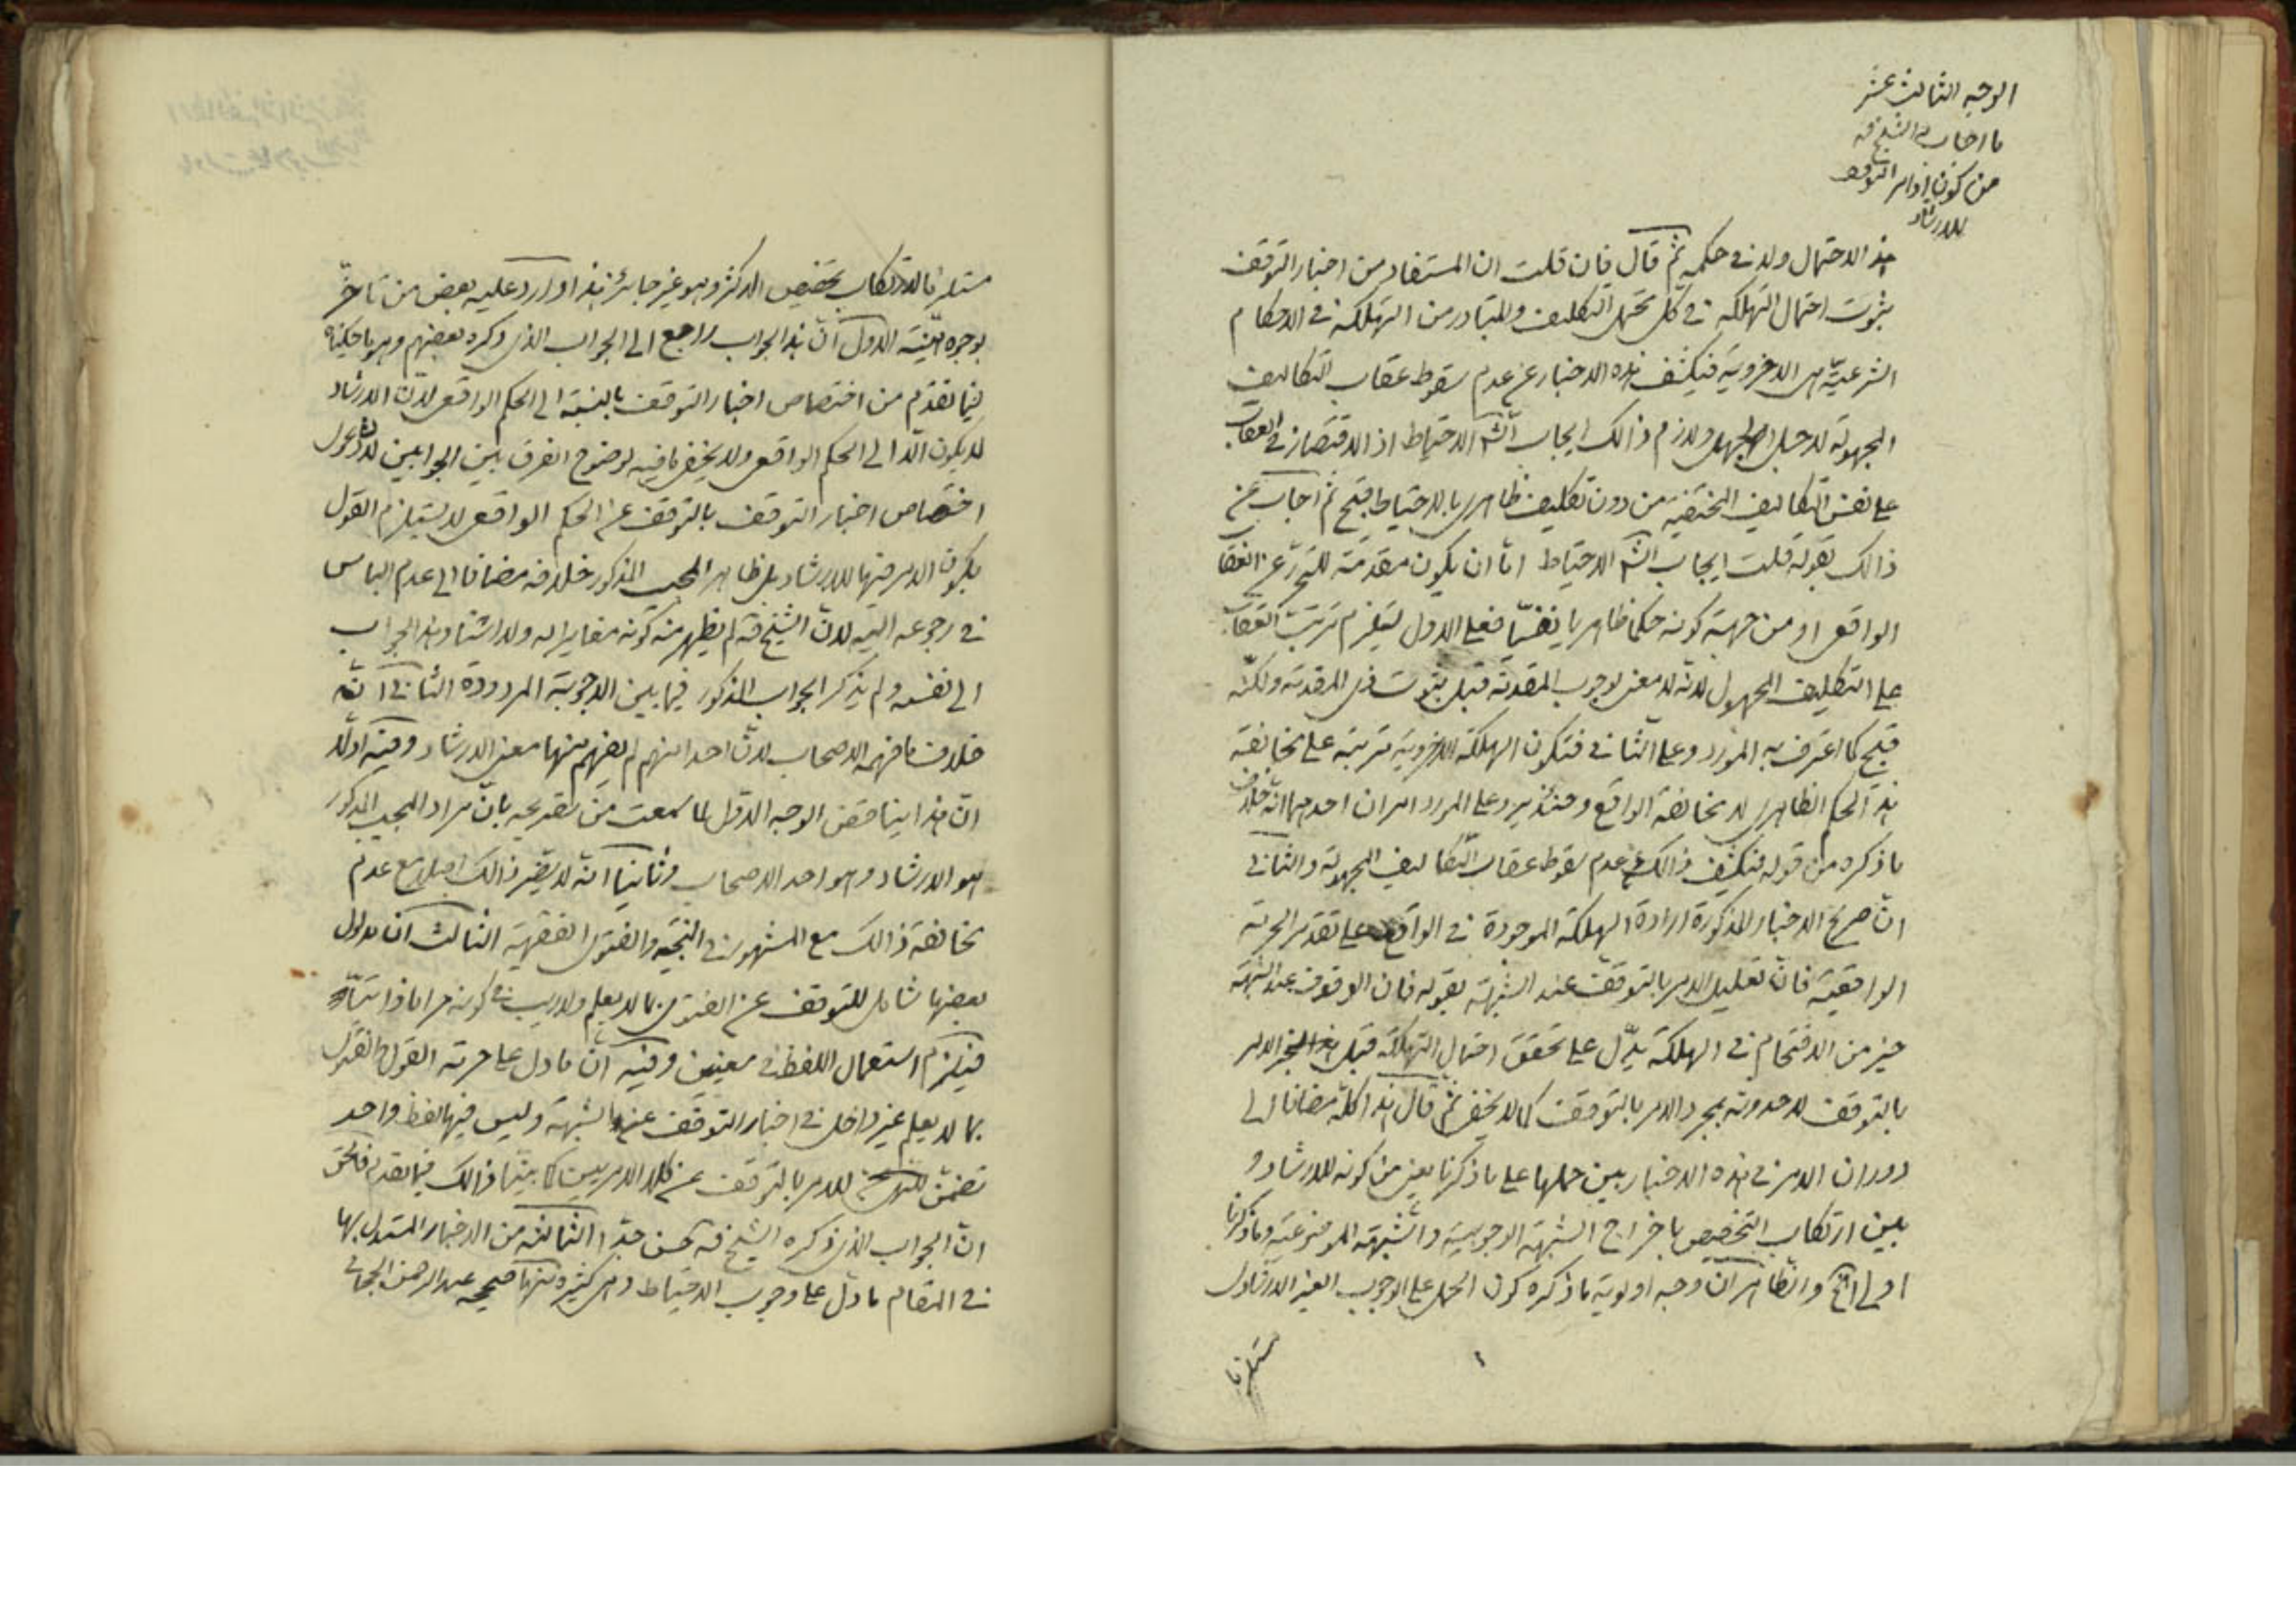 الوجه الثالث عشر
ما اجاب به الشيخ قه
من كون اوامر التوقف
للارشاد
هذا الاحتمال ولا في حكمه ثم قال فان قلت ان المستفاد من اخبار التوقف
ثبوت احتمال التهلكة في كل محتمل التكليف والمتبادر من التهلكة في الاحكام
الشرعية هي الاخروية فيكشف هذه الاخبار عن عدم سقوط عقاب التكاليف
المجهولة لاجل الجهل ولازم ذالك ايجاب الشم الاحتياط اذ الاقتصار في العقاب
على نفس التكاليف المختفية من دون تكليف ظاهري بالاحتياط قبيح ثم اجاب عن
ذالك بقوله قلت ايجاب الشم الاحتياط اما ان يكون مقدمة للتحرز عن العقاب
الواقعي او من جهة كونه حكما ظاهريا نفسيا فعلى الاول يستلزم ترتب العقاب
على التكليف المجهول لانه لا معنى لوجوب المقدمة قبل ثبوت ذي المقدمة ولكنه
قبيح كما اعترف به المورد وعلى الثاني فتكون الهلكة الاخروية مترتبة على مخالفة
هذا الحكم الظاهري لا مخالفة الواقع وحينئذ يرد على المورد امران احدهما انه خلاف
ما ذكره من قوله فيكشف ذالك عن عدم سقوط عقاب التكاليف المجهولة والثاني
ان صريح الاخبار المذكورة ارادة الهلكة الموجودة في الواقع على تقدير الحرمة
الواقعية فان تعليل الامر بالتوقف عند الشبهة بقوله فان الوقوف عند الشبهة
خير من الاقتحام في الهلكة يدل على تحقق احتمال التهلكة قبل هذا الخبر الامر
بالتوقف لا حدوثه بمجرد الامر بالتوقف كما لا يخفى ثم قال هذا كله مضافا الى
دوران الامر في هذه الاخبار بين حملها على ما ذكرنا يعني من كونه للارشاد و
بين ارتكاب التخصيص باخراج الشبهة الوجوبية والشبهة الموضوعية وما ذكرنا
اولى انتهى والظاهر ان وجه اولوية ما ذكره كون الحمل على الوجوب الغير الارشادي
مستلزما
مستلزما لارتكاب تخصيص الاكثر وهو غير جائز هذا واورد عليه بعض من تاخر
بوجوه ثلثة الاول ان هذا الجواب راجع الى الجواب الذي ذكره بعضهم وهو ما حكيناه
فيما تقدم من اختصاص اخبار التوقف بالنسبة الى الحكم الواقعي لان الارشاد
لا يكون الا الى الحكم الواقعي ولا يخفى ما فيه لوضوح الفرق بين الجوابين لان دعوى
اختصاص اخبار التوقف بالتوقف عن الحكم الواقعي لا يستلزم القول
بكون الامر فيها للارشاد بل ظاهر المجيب المذكور خلافه مضافا الى عدم الباس
في رجوعه اليه لان الشيخ قه لم يظهر منه كونه مغايرا له ولا استناد هذا الجواب
الى نفسه ولم يذكر الجواب المذكور فيما بين الاجوبة المردودة الثاني انه
خلاف ما فهمه الاصحاب لان احدا منهم لم يفهم منها معنى الارشاد وفيه اولا
ان هذا يناقض الوجه الاول لما سمعت من تصريحه بان مراد المجيب المذكور
هو الارشاد وهو احد الاصحاب وثانيا انه لا يضر ذالك اصلا مع عدم
مخالفة ذالك مع المشهور في النتيجة والفتوى الفقهية الثالث ان مدلول
بعضها شامل للتوقف عن الفتوى بما لا يعلم ولا ريب في كونه حراما ذاتيا
فيلزم استعمال اللفظ في معنيين وفيه ان ما دل على حرمة القول والفتوى
بما لا يعلم غير داخل في اخبار التوقف عند الشبهة وليس فيها لفظ واحد
تضمن للامر بالتوقف عن كلا الامرين كما بينا ذالك فيما تقدم فالحق
ان الجواب الذي ذكره الشيخ قه حسن جدا الثالثة من الاخبار المستدل بها
في المقام ما دل على وجوب الاحتياط وهي كثيرة منها صحيحة عبد الرحمن الحجاج